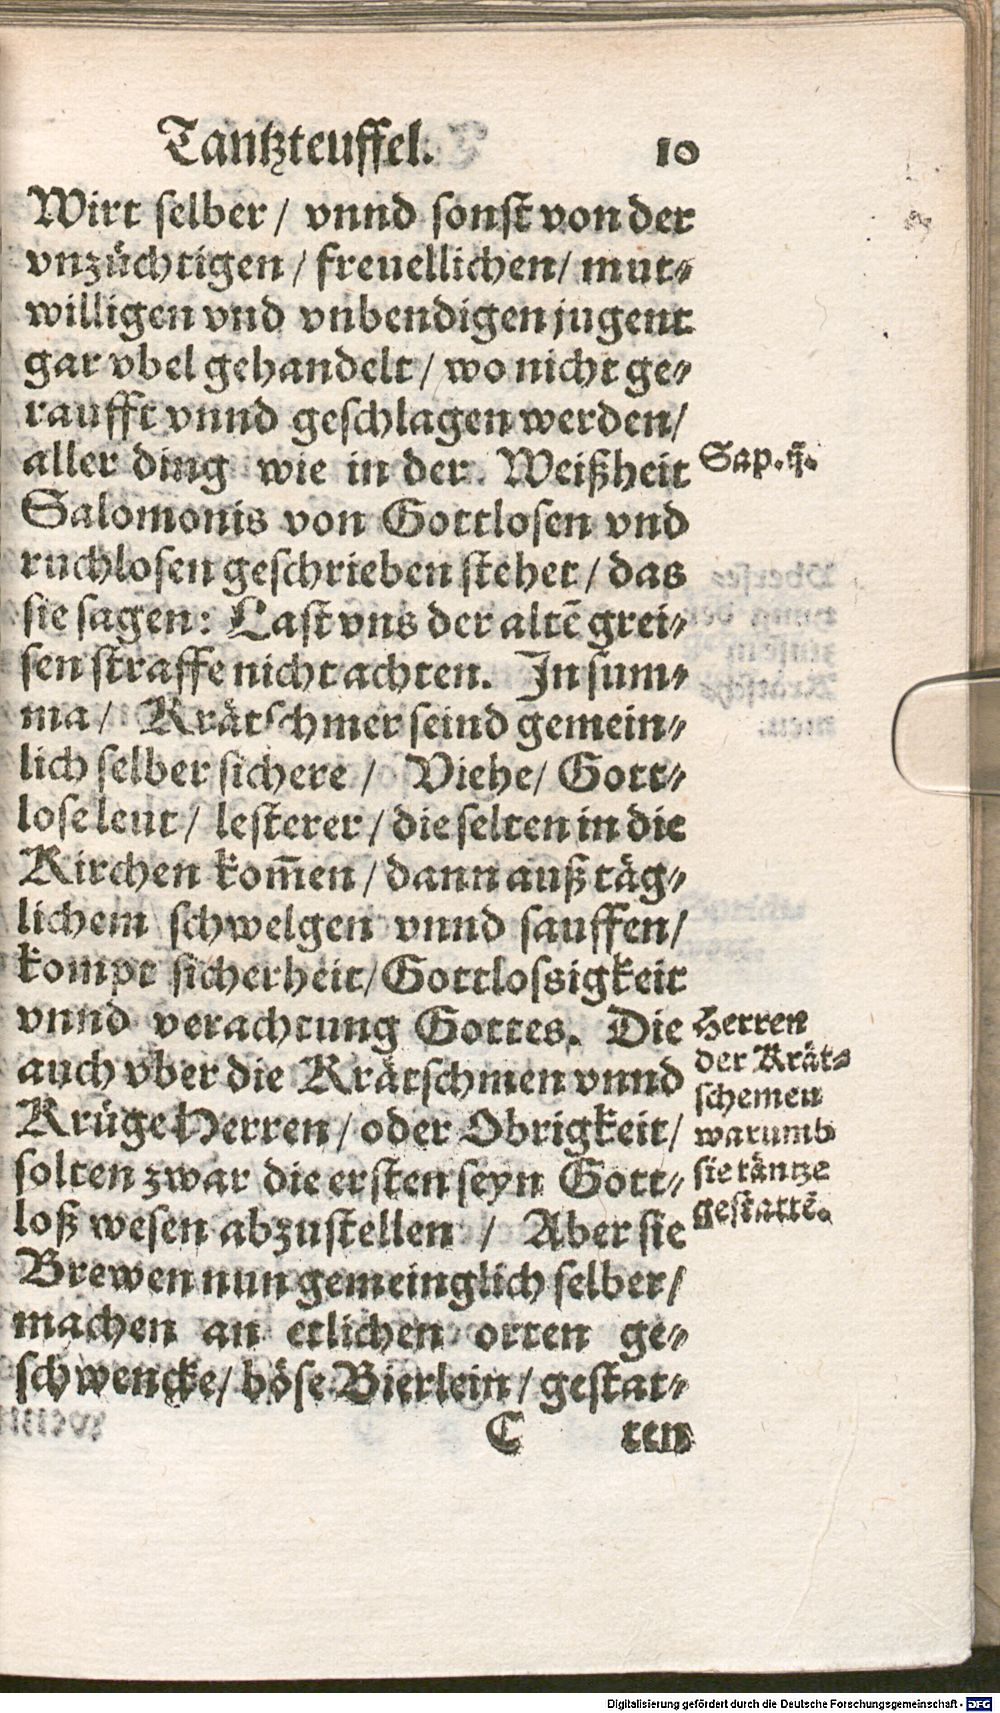 Tantzteuffel. 10
Wirt selber / vnnd sonst von der
vnzüchtigen / freuellichen / mut-
willigen vnd vnbendigen jugent
gar vbel gehandelt / wo nicht ge-
raufft vnnd geschlagen werden /
aller ding wie in der Weißheit
Sap. ij.
Salomonis von Gottlosen vnd
ruchlosen geschrieben stehet / das
sie sagen: Last vns der altē grei-
sen straffe nicht achten. In sum-
ma / Krätschmer seind gemein-
lich selber sichere / Viehe / Gott-
lose leut / lesterer / die selten in die
Kirchen kom̄en / dann auß täg-
lichem schwelgen vnnd sauffen /
kompt sicherheit / Gottlossigkeit
vnnd verachtung Gottes. Die
auch vber die Krätschmen vnnd
Krüge Herren / oder Obrigkeit /
solten zwar die ersten seyn Gott-
loß wesen abzustellen / Aber sie
Brewen nun gemeinglich selber /
machen an etlichen orten ge-
schwencke / böse Bierlein / gestat-
Herren
der Krät-
schemen
warumb
sie täntze
gestattē.
C ten
Digitalisierung gefördert durch die Deutsche Forschungsgemeinschaft - DFG